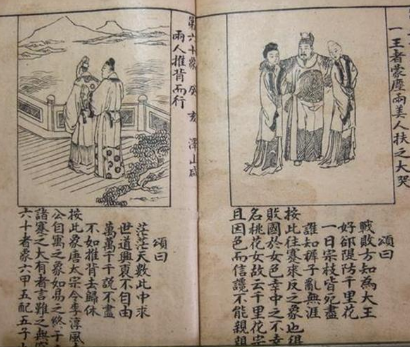 一王者蒙塵兩美人扶之大哭
頌曰
戰敗方知為大王
好部隄防千里花
一日宗枝皆死盡
誰知褲子亂無涯
按此往蹇來反之象也
敗國於女色幸中之不幸
名桃花女故云千里花宗
且因色而信讒不能親親
第六十象 癸亥 澤山咸
兩人推背而行
頌曰
茫茫天數此中求
世道興衰不自由
萬萬千千說不盡
不如推背去歸休
按此象唐太宗令李淳風
公自寓之象如為之終于
諸蹇之大有者言難之與
六十者象六甲五配五子十